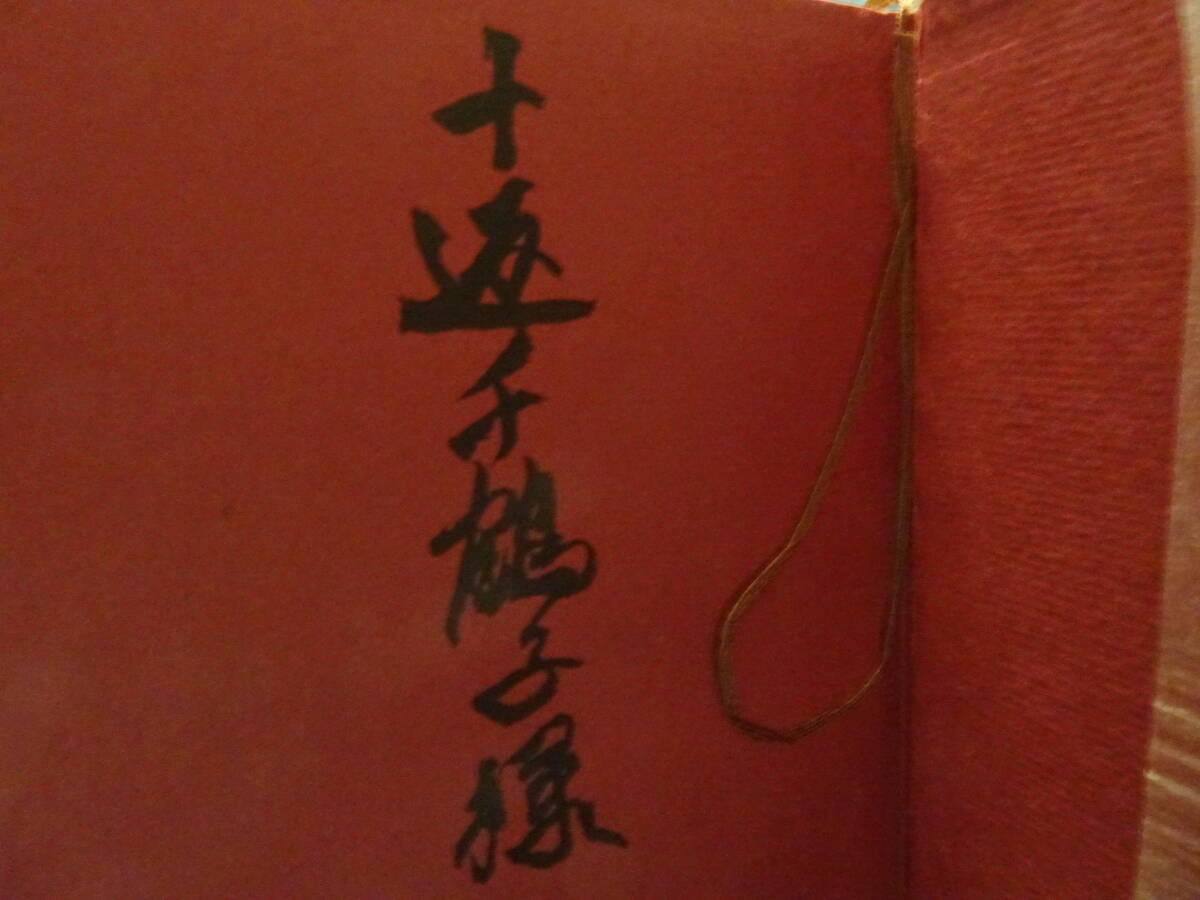 十返千鶴子様